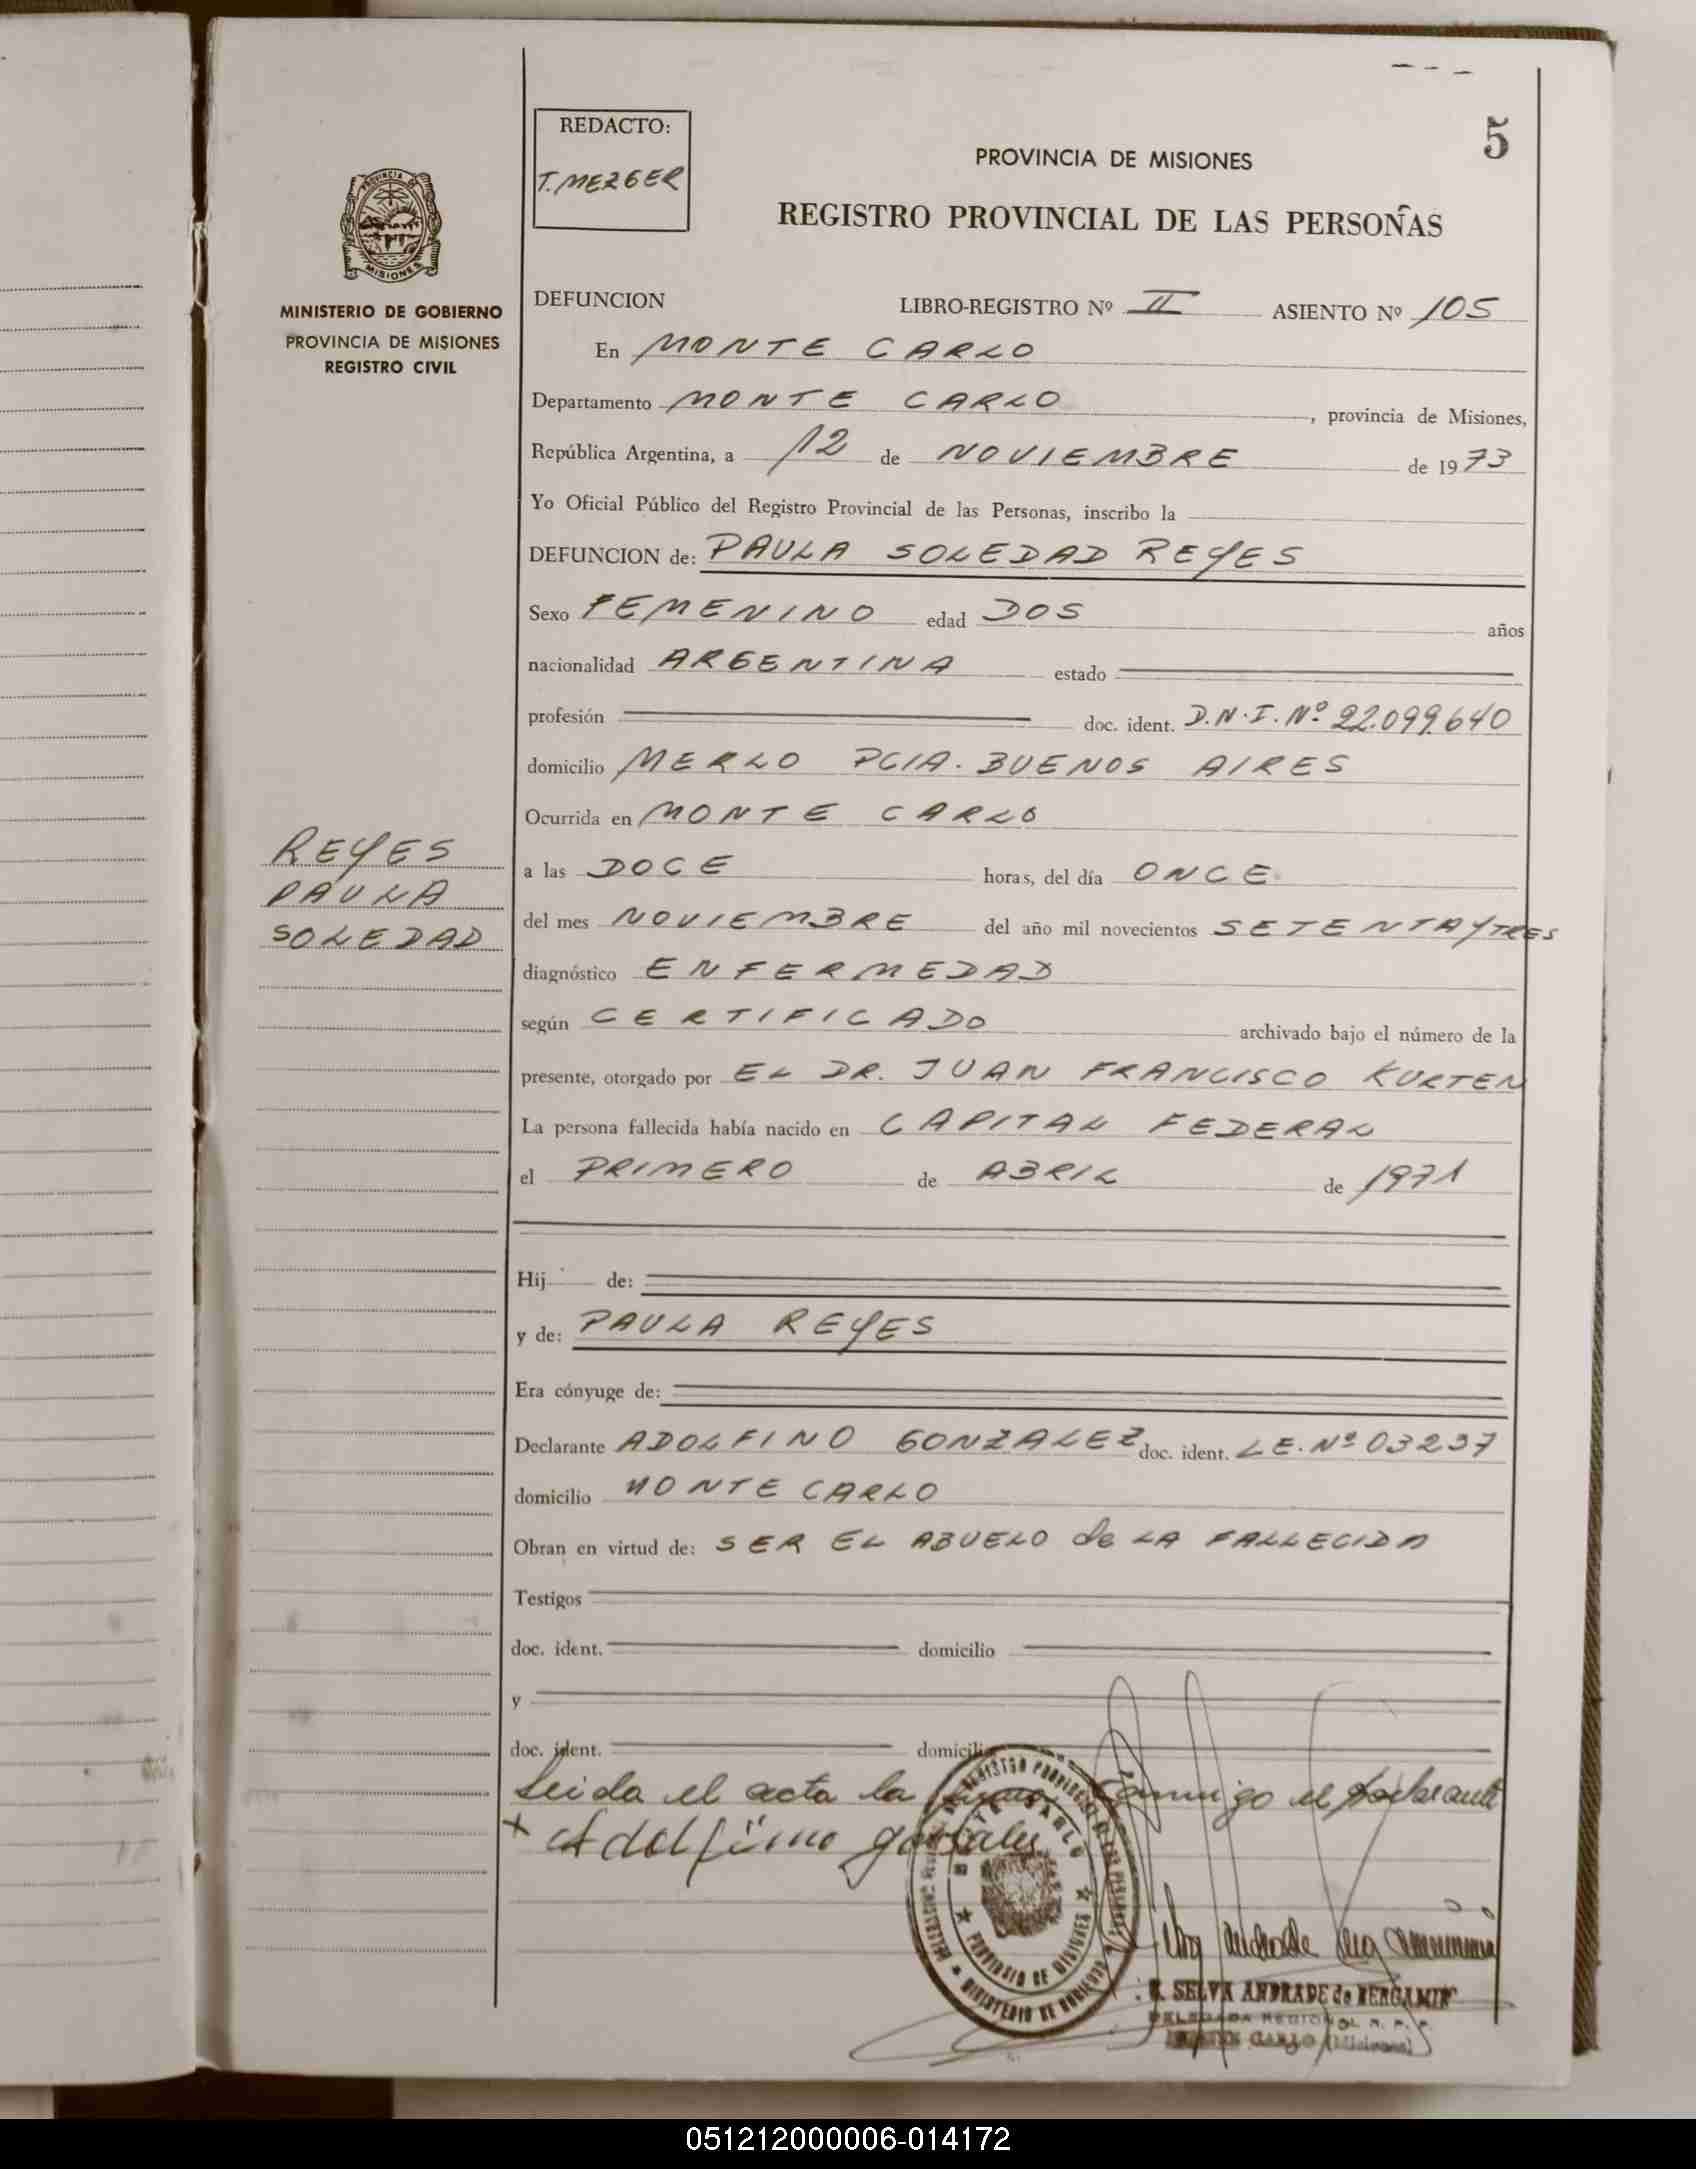 5
REDACTO:
T. MEZGER
PROVINCIA DE MISIONES
REGISTRO PROVINCIAL DE LAS PERSONAS
PROVINCIA DE
MISIONES
MINISTERIO DE GOBIERNO
PROVINCIA DE MISIONES
REGISTRO CIVIL
DEFUNCION LIBRO-REGISTRO Nº II ASIENTO Nº 105
En MONTE CARLO
Departamento MONTE CARLO, provincia de Misiones,
República Argentina, a 12 de NOVIEMBRE de 1973
Yo Oficial Público del Registro Provincial de las Personas, inscribo la
DEFUNCION de: PAULA SOLEDAD REYES
Sexo FEMENINO edad DOS años
nacionalidad ARGENTINA estado
profesión doc. ident. D.N.I. Nº 22.099.640
domicilio MERLO PCIA. BUENOS AIRES
Ocurrida en MONTE CARLO
REYES
PAULA
SOLEDAD
a las DOCE horas, del día ONCE
del mes NOVIEMBRE del año mil novecientos SETENTA Y TRES
diagnóstico ENFERMEDAD
según CERTIFICADO archivado bajo el número de la
presente, otorgado por EL DR. JUAN FRANCISCO KURTEN
La persona fallecida había nacido en CAPITAL FEDERAL
el PRIMERO de ABRIL de 1971
Hij de:
y de: PAULA REYES
Era cónyuge de:
Declarante ADOLFINO GONZALEZ doc. ident. L.E. Nº 03237
domicilio MONTE CARLO
Obran en virtud de: SER EL ABUELO de LA FALLECIDA
Testigos
doc. ident. domicilio
y
doc. ident. domicilio
Leida el acta la firma conmigo el declarante
+ Adolfino gonsales
REGISTRO PROVINCIAL DE LAS PERSONAS
MONTE CARLO
PROVINCIA DE MISIONES
MINISTERIO DE GOBIERNO
SELVA ANDRADE de BERGAMIN
DELEGADA REGIONAL R. P. P.
MONTE CARLO (Misiones)
051212000006-014172